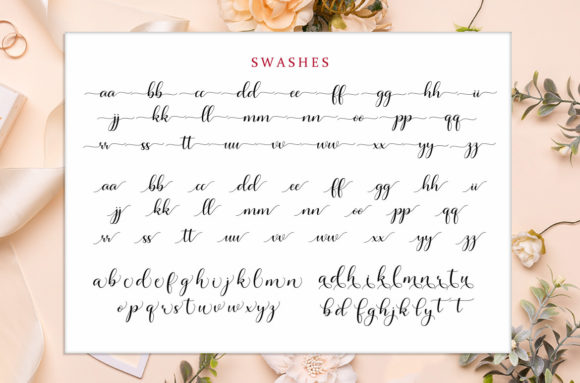 SWASHES
aa bb cc dd ee ff gg hh ii
jj kk ll mm nn oo pp qq
rr ss tt uu vv ww xx yy zz
aa bb cc dd ee ff gg hh ii
jj kk ll mm nn oo pp qq
rr ss tt uu vv ww xx yy zz
a b c d e f g h i j k l m n
o p q r s t u v w x y z
a d h i k l m n r t u
b d f g h j k l y t t